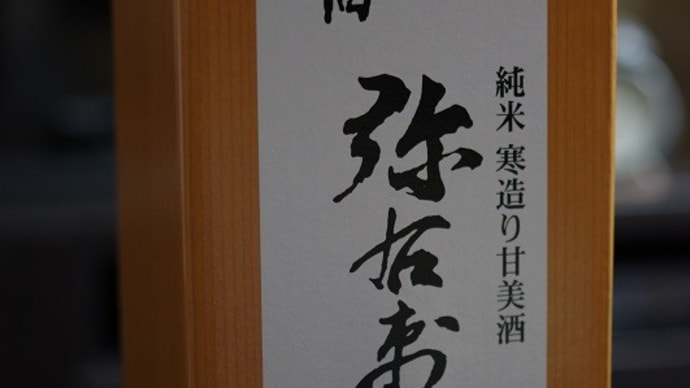 純米 寒造り甘美酒
弥右衛